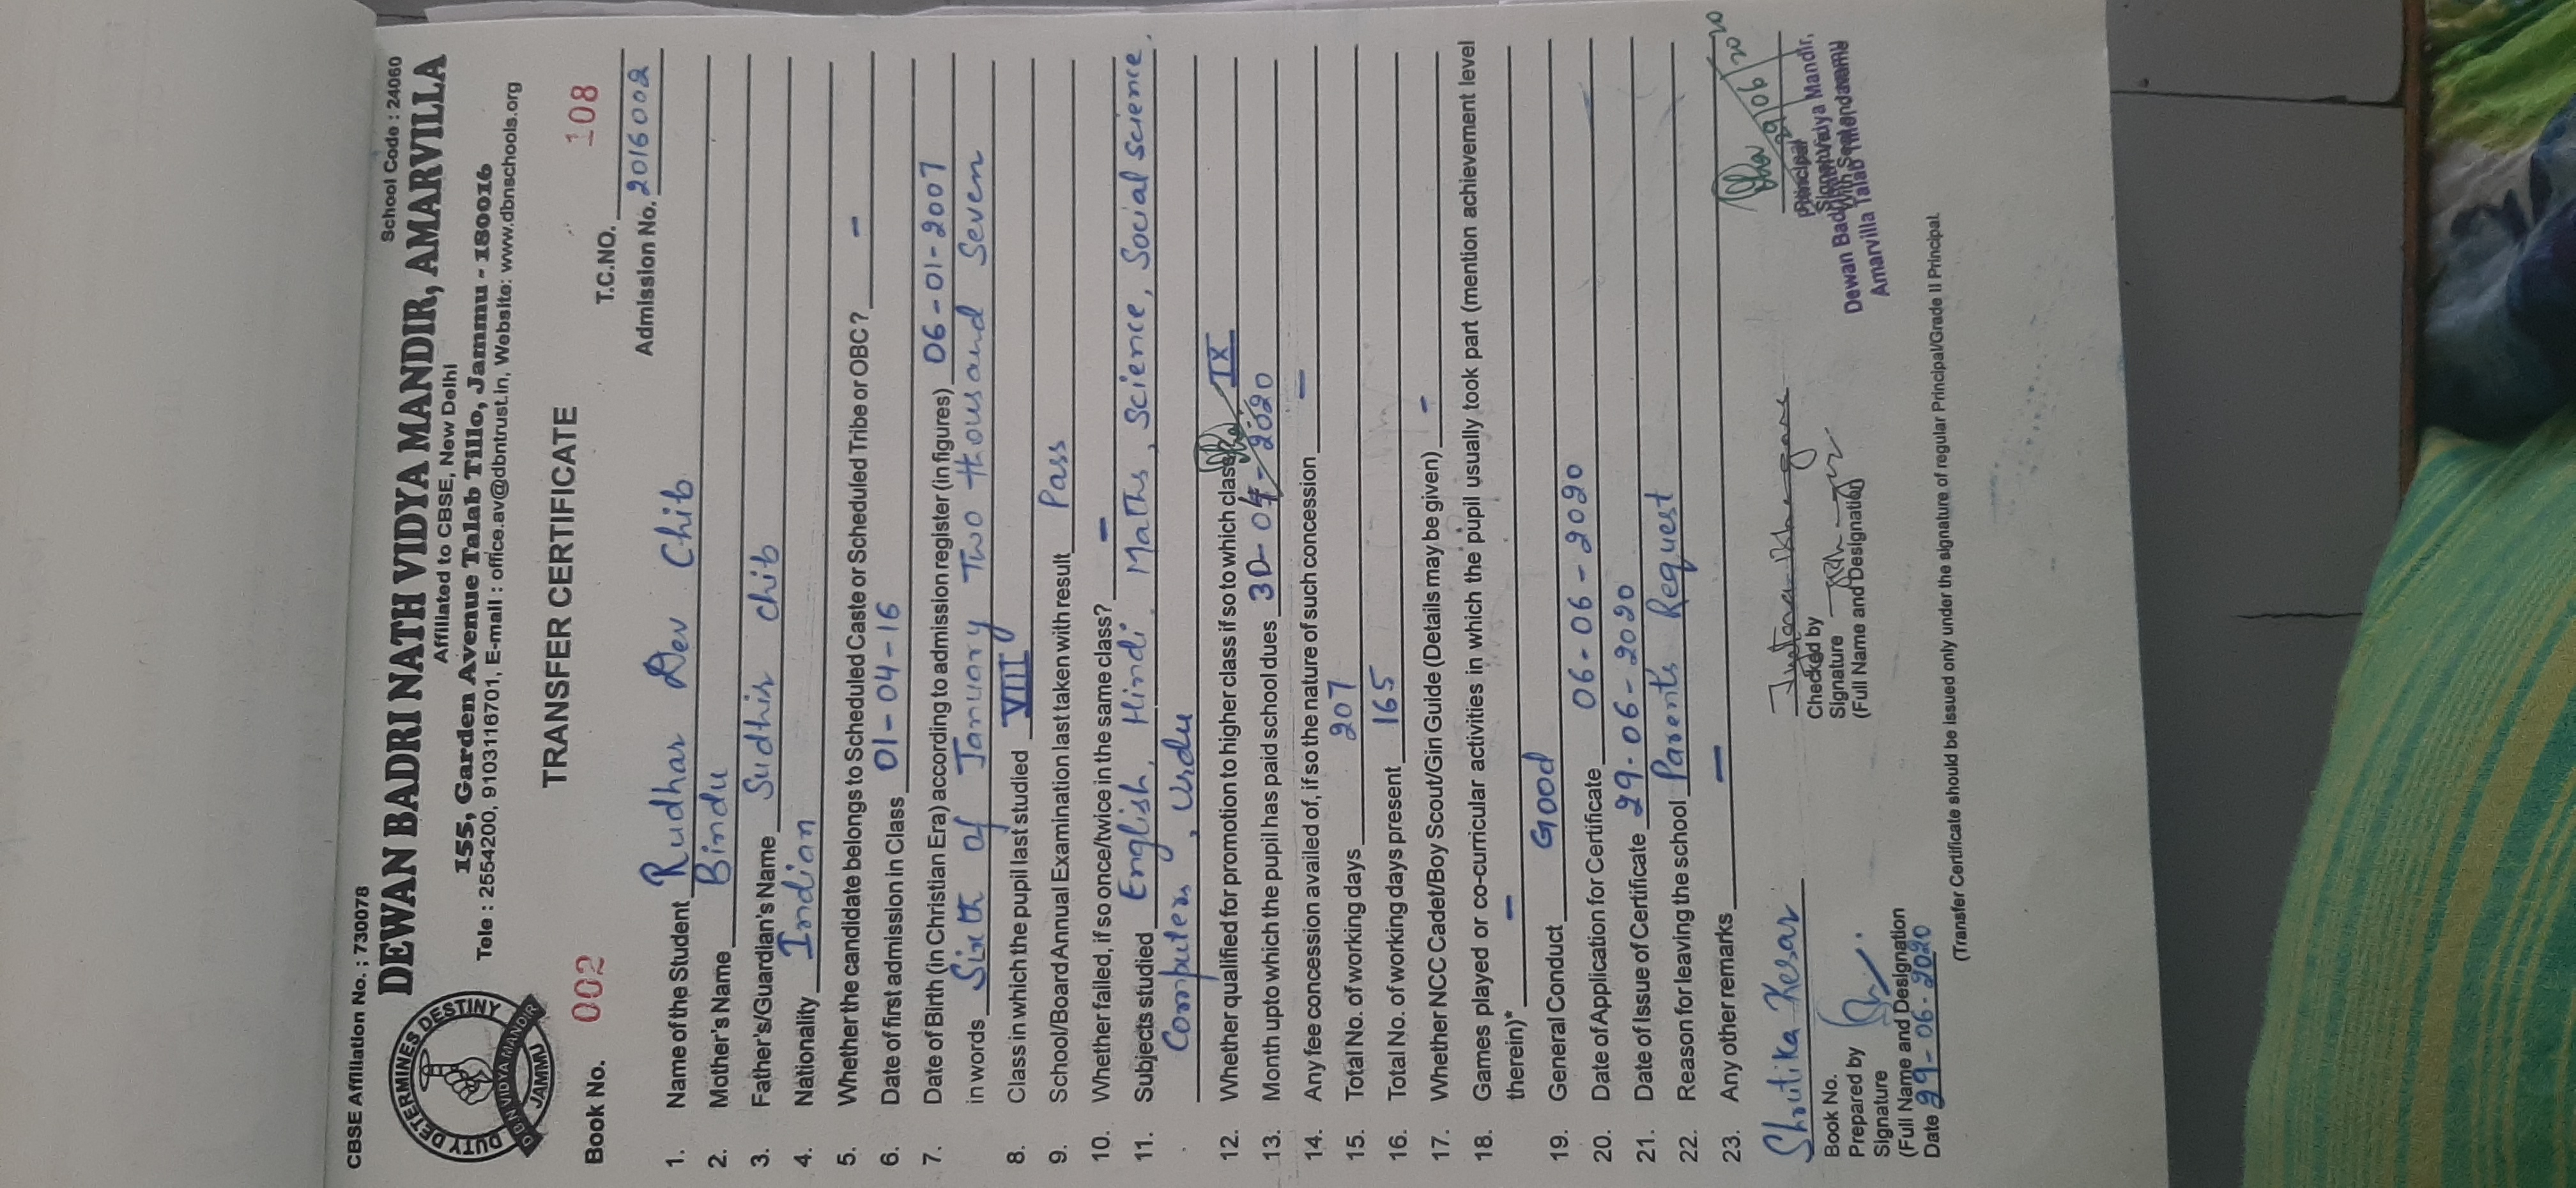 CBSE Affiliation No. : 730078 School Code : 24060
DEWAN BADRI NATH VIDYA MANDIR, AMARVILLA
Affiliated to CBSE, New Delhi
155, Garden Avenue Talab Tillo, Jammu - 180016
Tele : 2554200, 9103116701, E-mail : office.av@dbntrust.in, Website: www.dbnschools.org
DUTY DETERMINES DESTINY
D.B.N VIDYA MANDIR
JAMMU
TRANSFER CERTIFICATE
Book No. 002 T.C.NO. 108
Admission No. 20160002
1. Name of the Student Rudhar Dev Chib
2. Mother's Name Bindu
3. Father's/Guardian's Name Sudhir Chib
4. Nationality Indian
5. Whether the candidate belongs to Scheduled Caste or Scheduled Tribe or OBC? -
6. Date of first admission in Class 01-04-16
7. Date of Birth (in Christian Era) according to admission register (in figures) 06-01-2007
in words Sixth of January Two thousand Seven
8. Class in which the pupil last studied VIII
9. School/Board Annual Examination last taken with result Pass
10. Whether failed, if so once/twice in the same class? -
11. Subjects studied English, Hindi, Maths, Science, Social Science,
Computer, Urdu
12. Whether qualified for promotion to higher class if so to which class IX
13. Month upto which the pupil has paid school dues 30-04-2020
14. Any fee concession availed of, if so the nature of such concession -
15. Total No. of working days 207
16. Total No. of working days present 165
17. Whether NCC Cadet/Boy Scout/Gin Guide (Details may be given) -
18. Games played or co-curricular activities in which the pupil usually took part (mention achievement level
therein)* -
19. General Conduct Good
20. Date of Application for Certificate 06-06-2020
21. Date of Issue of Certificate 29-06-2020
22. Reason for leaving the school Parents Request
23. Any other remarks -
29/06/2020
Shrutika Kesar
Book No. Checked by Principal
Prepared by Signature
Signature (Full Name and Designation)
(Full Name and Designation
Date 29-06-2020
Amarvilla Talab Tillo
(Transfer Certificate should be issued only under the signature of regular Principal/Grade II Principal.